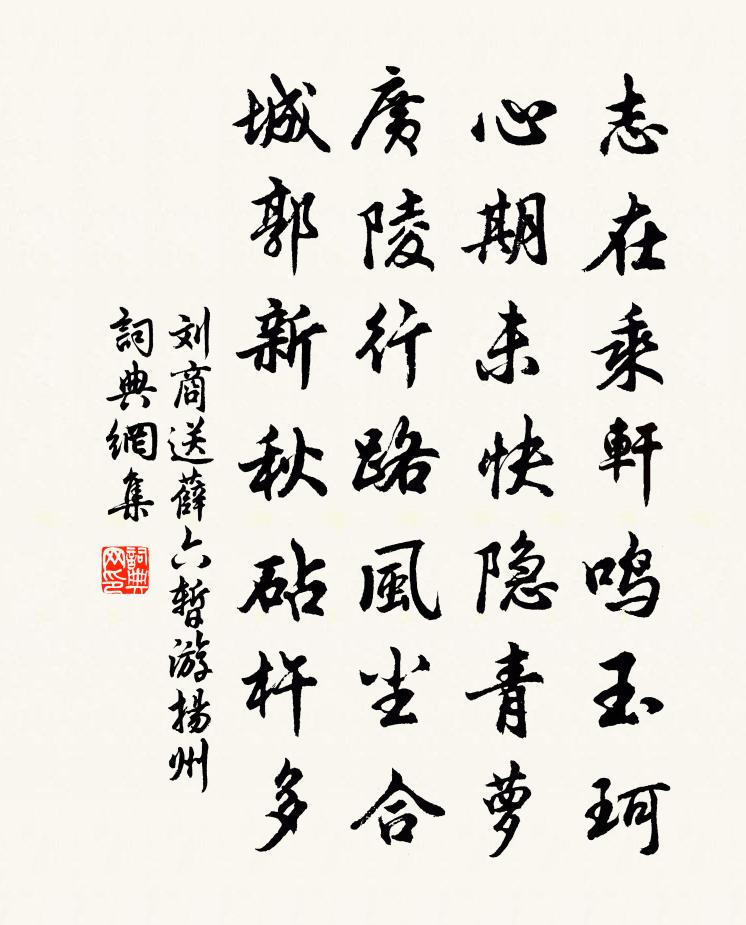 志在乘軒鳴玉珂
心期未快隐青萝
廣陵行路風尘合
城郭新秋砧杵多
刘商送薛六暫游揚州
詞典網集
詞典网印